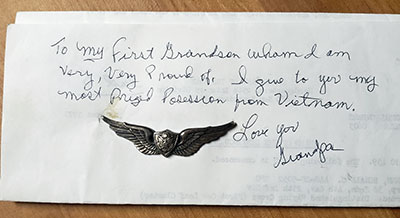 To my First Grandson whom I am
Very, Very Proud of. I give to you my
most Prized Posession from Vietnam.
Love you
Grandpa